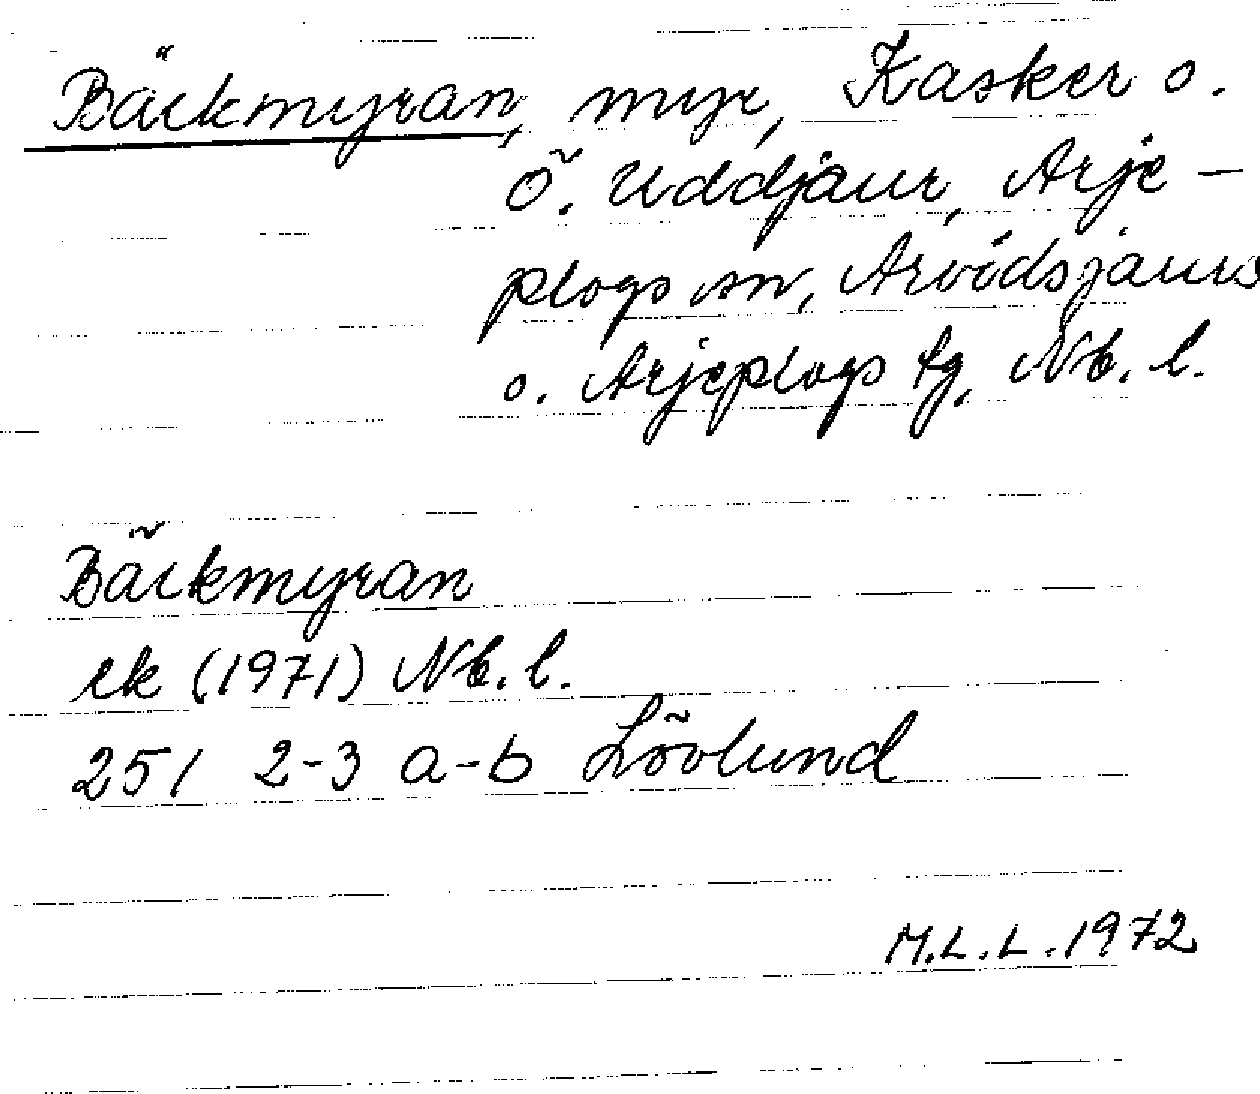 Bäckmyran, myr, Kasker o.
Ö. Uddjaur, Arje-
plogs sn, Arvidsjaurs
o. Arjeplogs tg, Nb. l.
Bäckmyran
ek (1971) Nb. l.
251 2-3 a-b Lövlund
M.L.L. 1972